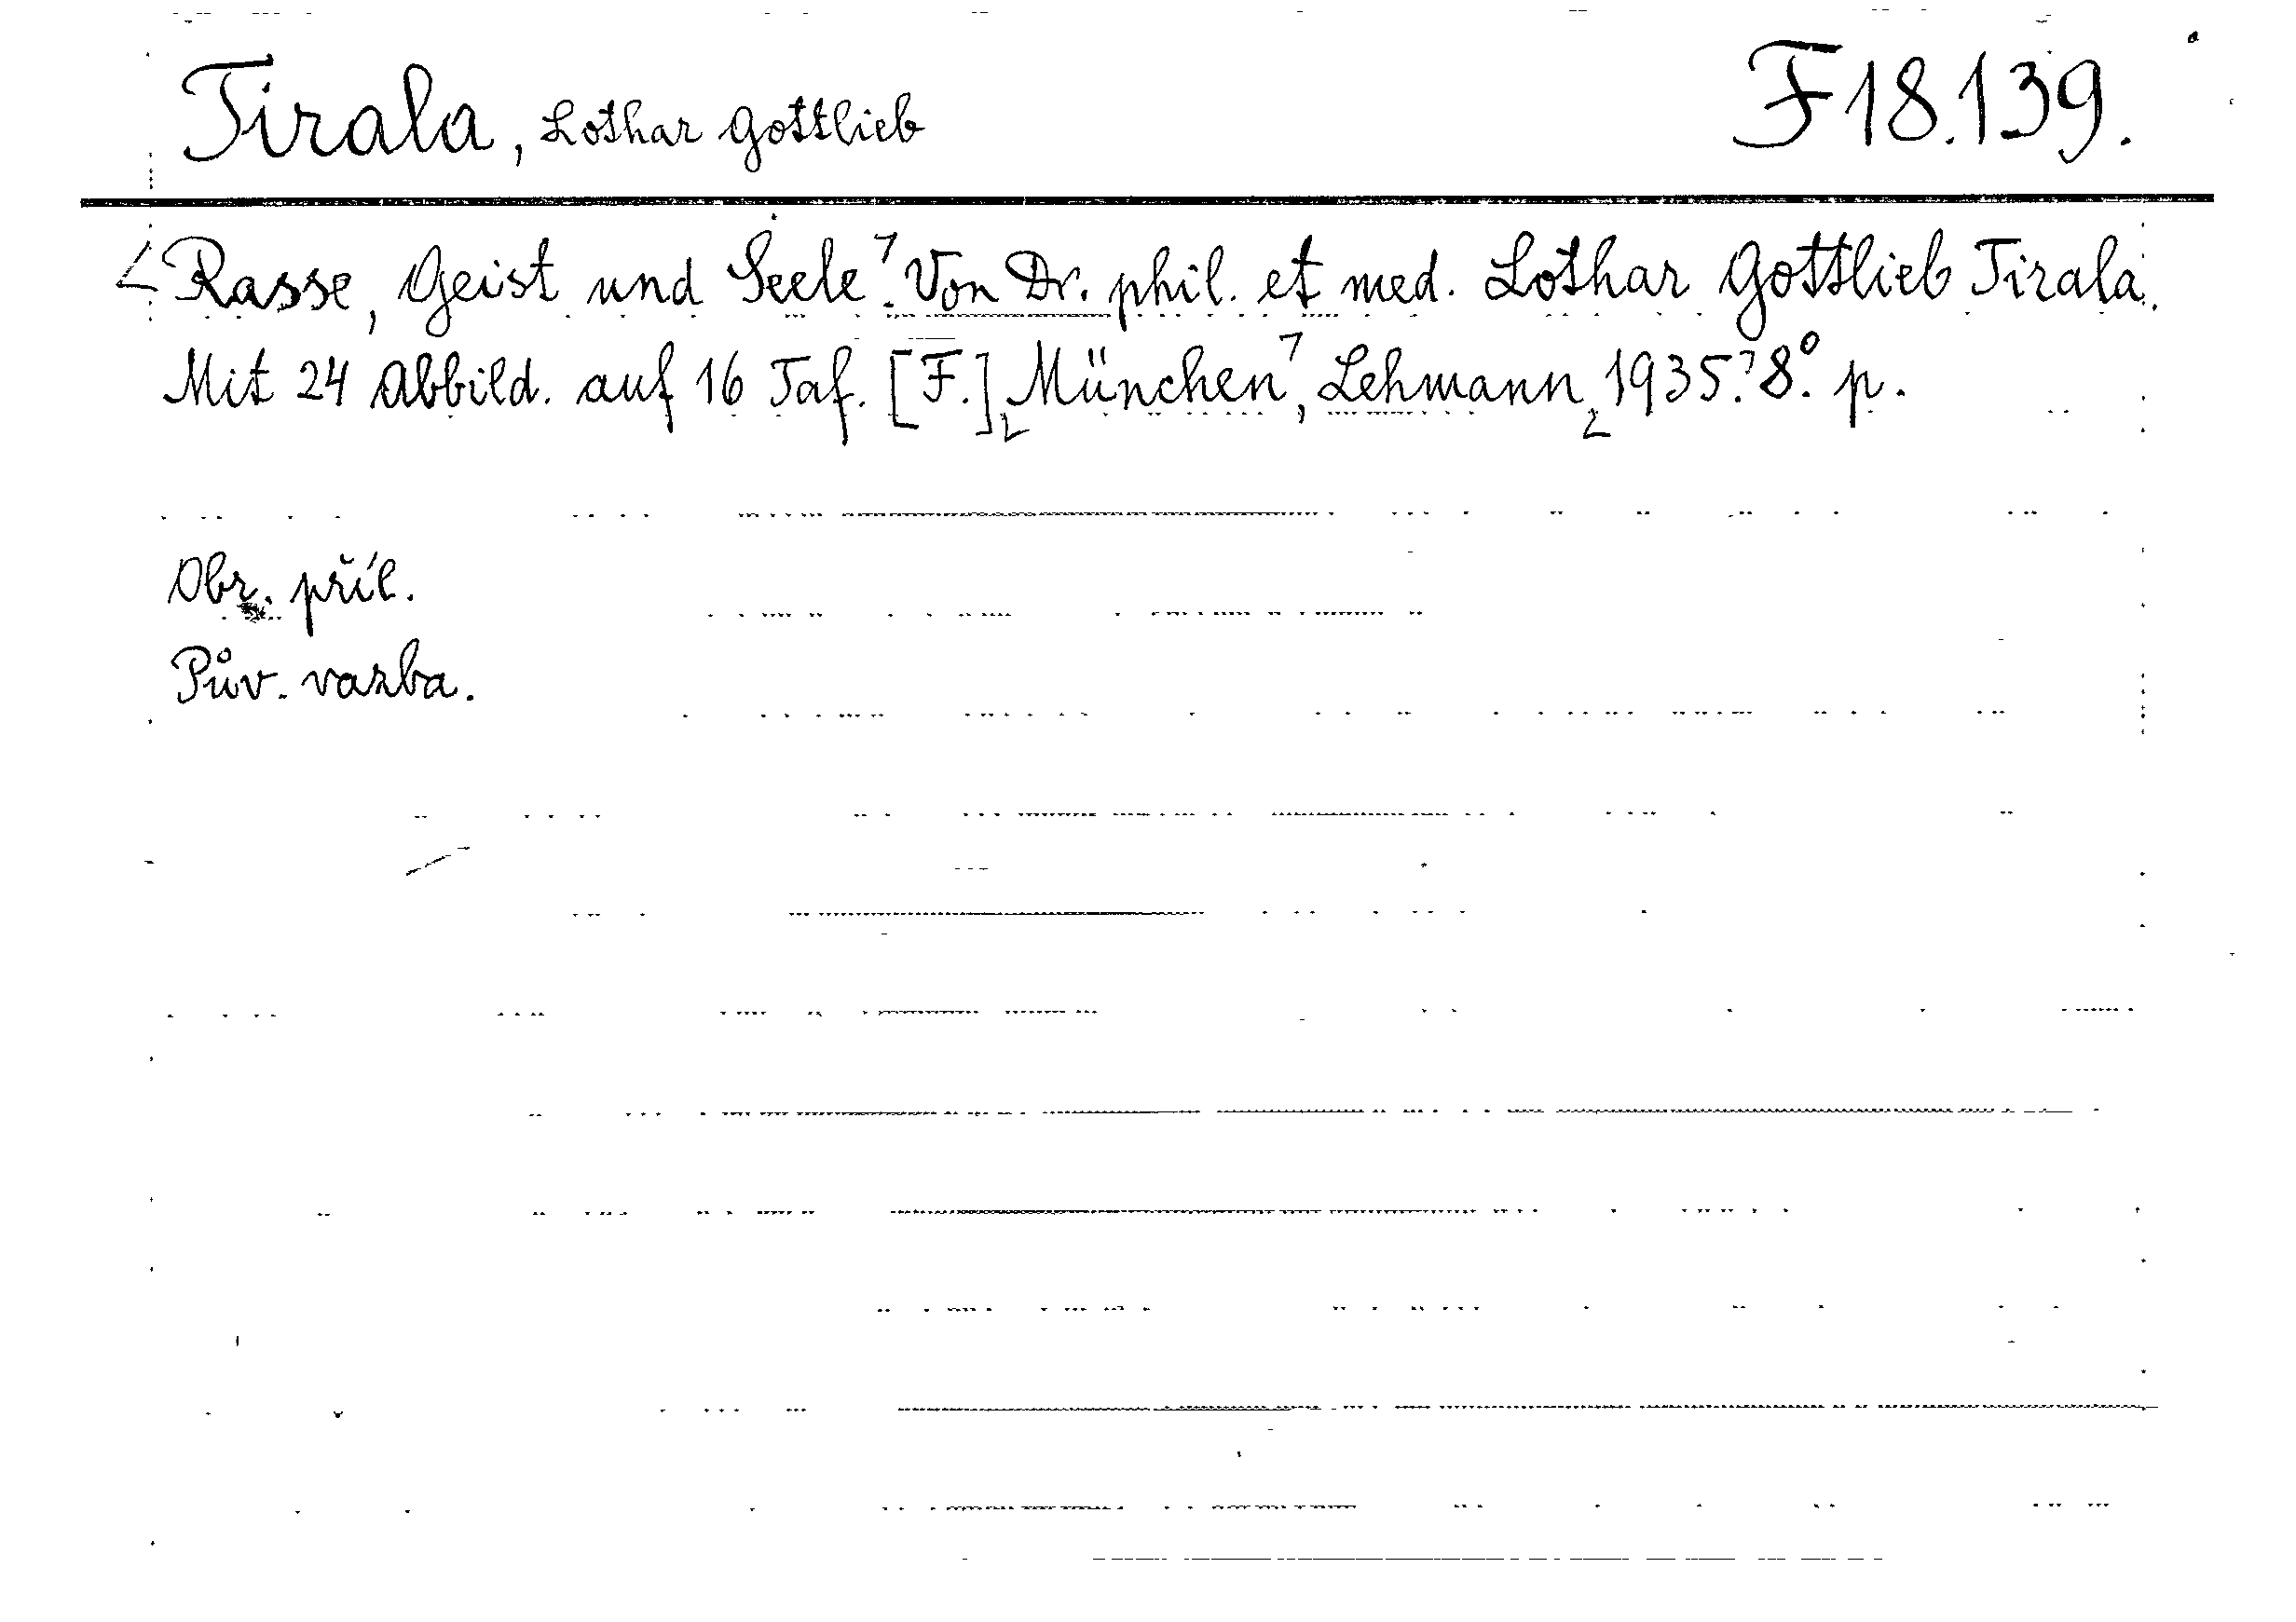 Tirala, Lothar Gottlieb F 18.139.
Rasse, Geist und Seele. Von Dr. phil. et med. Lothar Gottlieb Tirala.
Mit 24 Abbild. auf 16 Taf. [F.] München, Lehmann, 1935. 8° p.
Obr. příl.
Pův. vazba.